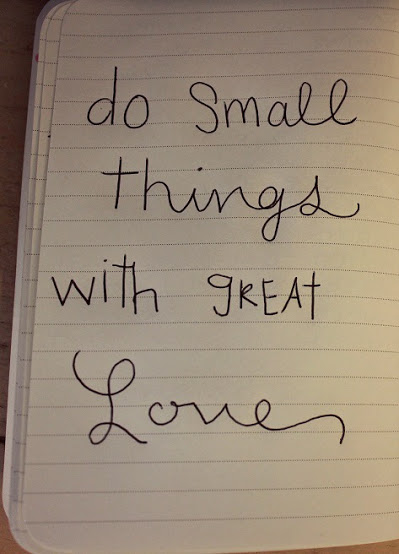 do small
things
with gREAT
Love